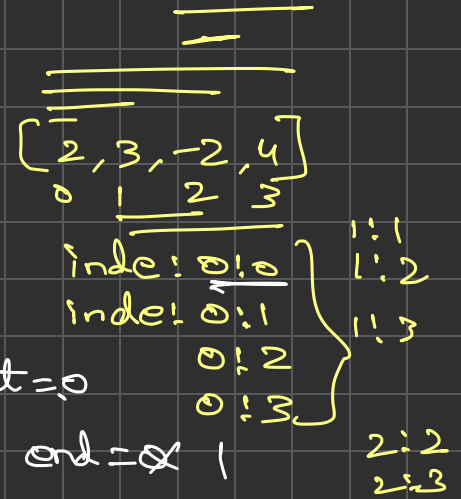 [2, 3, -2, 4]
0 1 2 3
inde: 0:0
inde: 0:1
0:2
0:3
1:1
1:2
1:3
t=0
end = 0 1
2:2
2:3